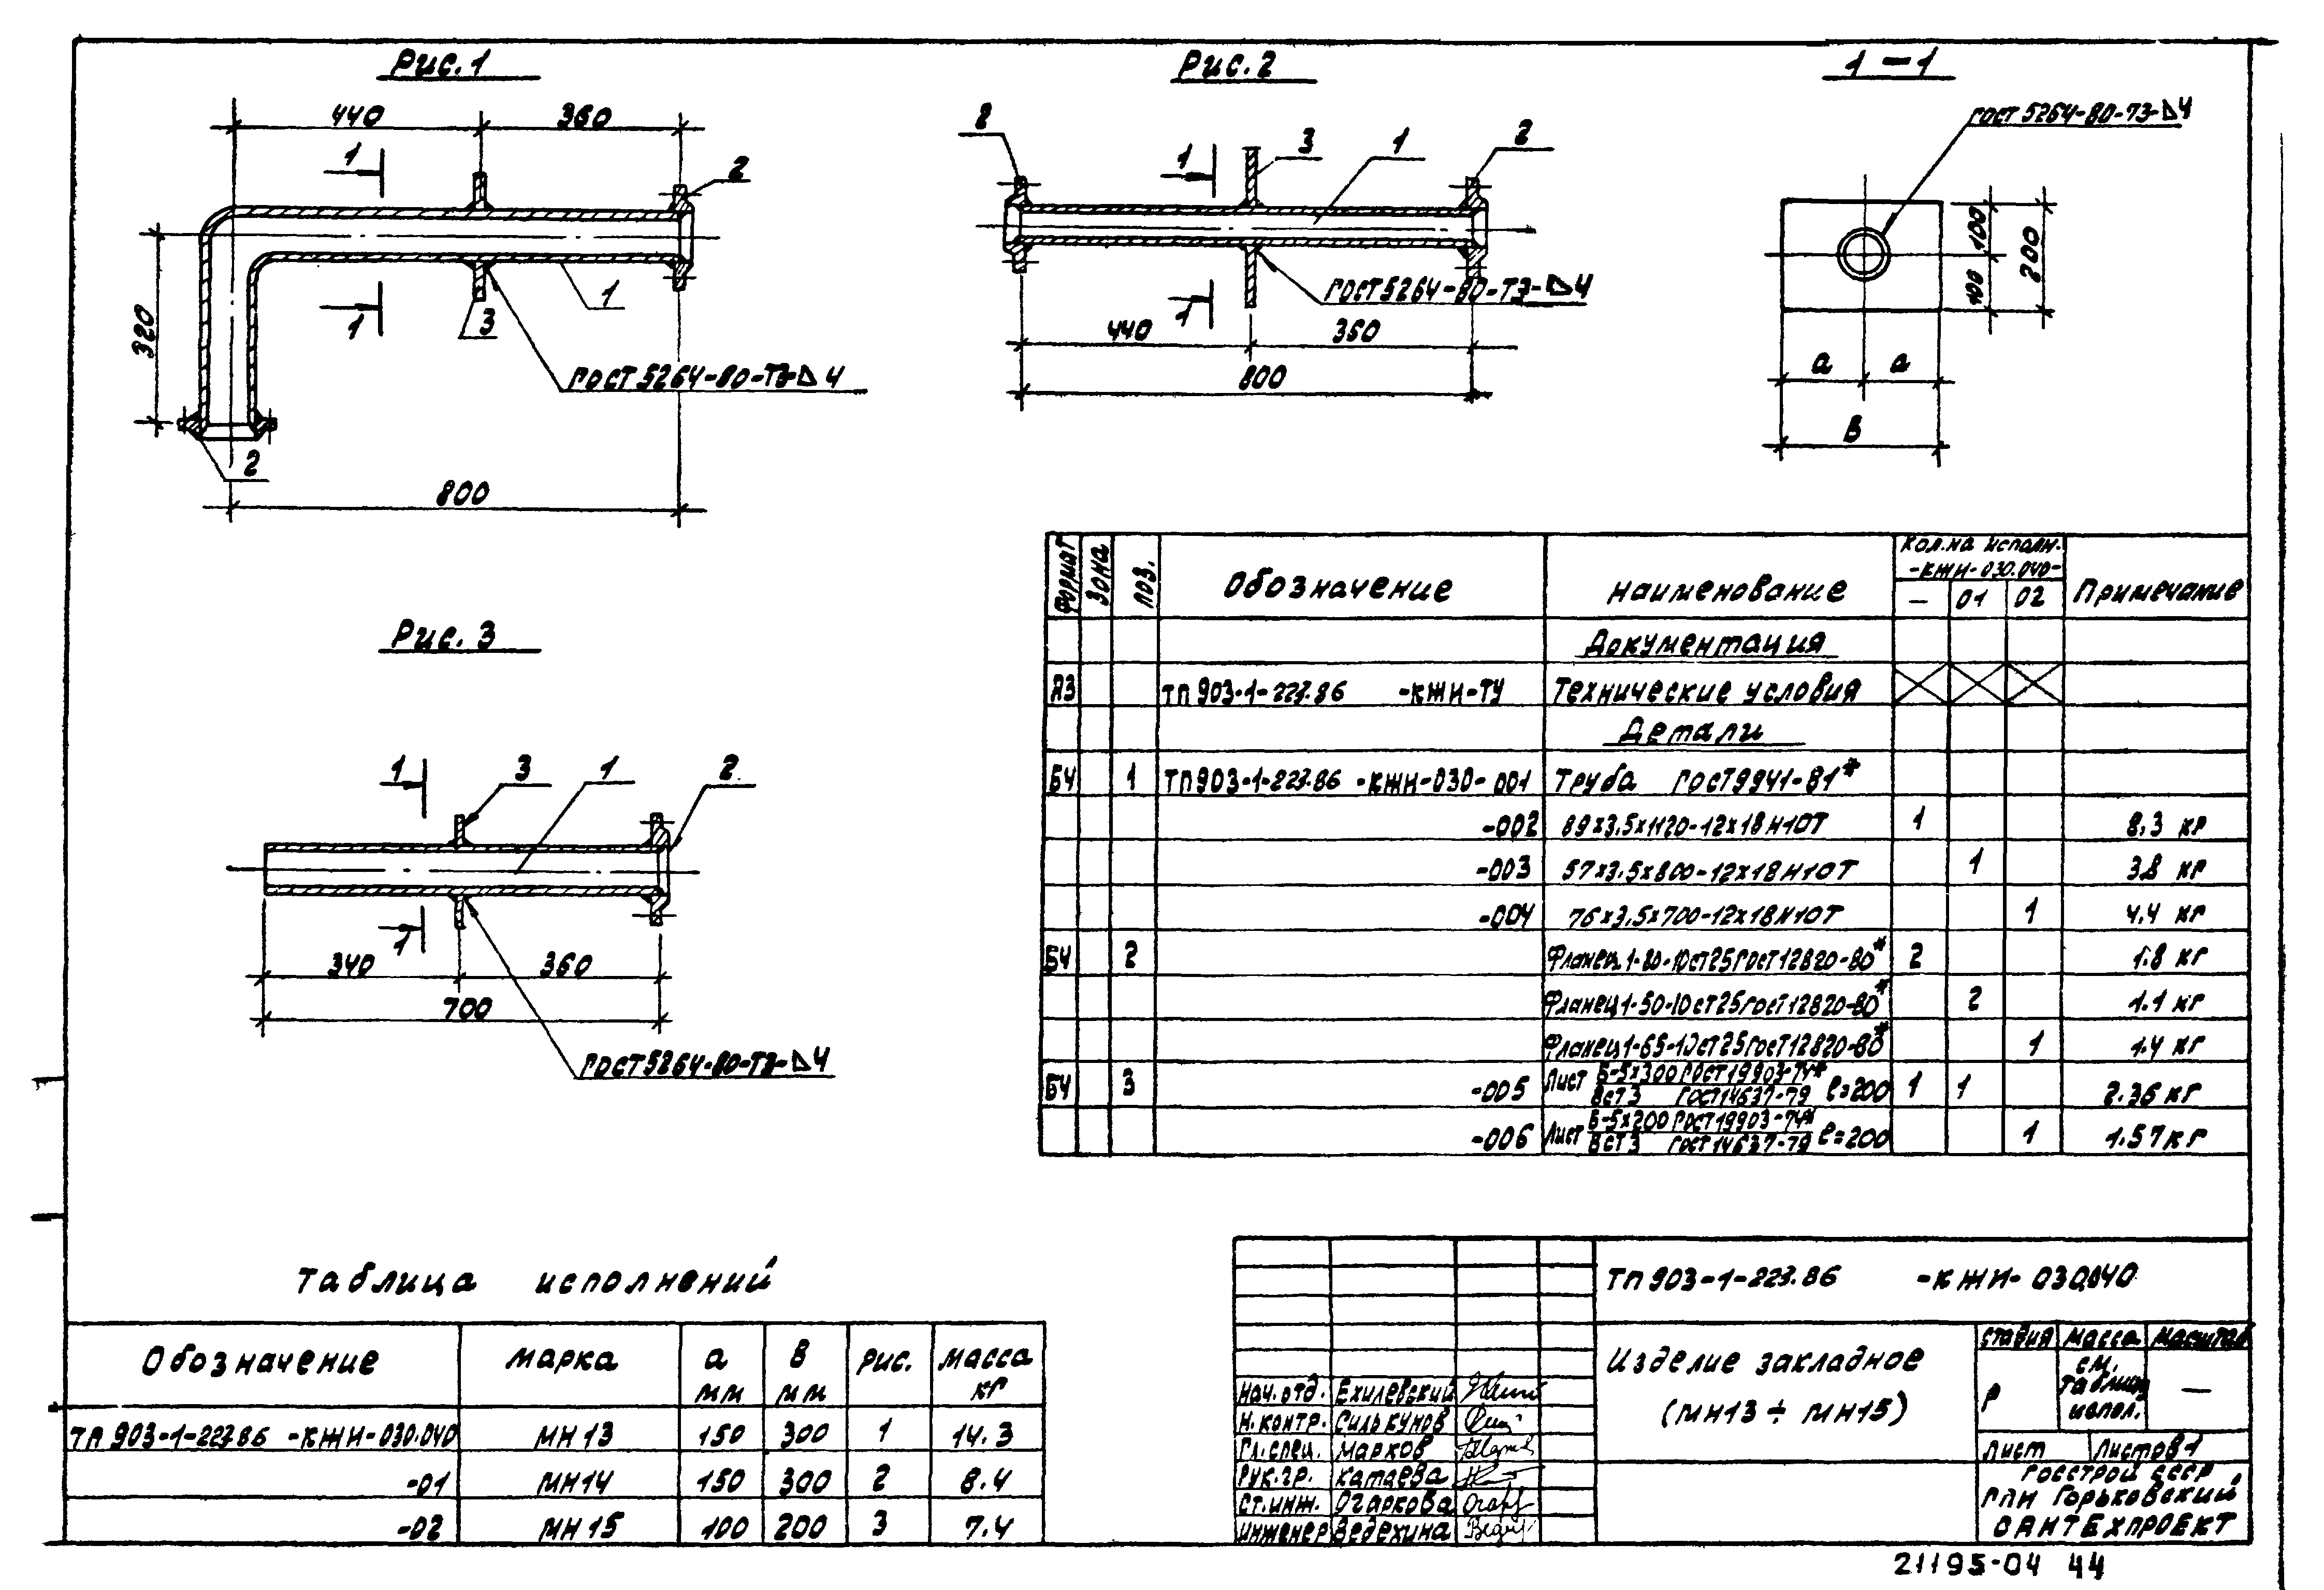 Рис.1
440 360
1
2
320
1
3
1
ГОСТ 5264-80-Т3-△4
2
800
Рис.2
2
1
3
1
2
ГОСТ 5264-80-Т3-△4
1
440 360
800
1-1
ГОСТ 5264-80-Т3-△4
100
100
200
а а
В
Рис. 3
1
3
1
2
1
340 360
700
ГОСТ 5264-80-Т3-△4
Формат Зона Поз. Обозначение Наименование Кол.на исполн. -КЖИ-030.040- Примечание
— 01 02
Документация
А3 ТП 903-1-227.86 -КЖИ-ТУ Технические условия
Детали
БЧ 1 ТП 903-1-227.86 -КЖИ-030-001 Труба ГОСТ 9941-81*
-002 89х3.5х1120-12х18Н10Т 1 8.3 кг
-003 57х3.5х800-12х18Н10Т 1 3.8 кг
-004 76х3.5х700-12х18Н10Т 1 4.4 кг
БЧ 2 Фланец 1-80-10 Ст25 ГОСТ 12820-80* 2 1.8 кг
Фланец 1-50-10 Ст25 ГОСТ 12820-80* 2 1.1 кг
Фланец 1-65-10 Ст25 ГОСТ 12820-80* 1 1.4 кг
БЧ 3 -005 Лист Б-5х300 ГОСТ 19903-74* ВСт3 ГОСТ 14637-79 ℓ=200 1 1 2.36 кг
-006 Лист Б-5х200 ГОСТ 19903-74* ВСт3 ГОСТ 14637-79 ℓ=200 1 1.57 кг
Таблица исполнений
Обозначение Марка а мм В мм Рис. Масса кг
ТП 903-1-227.86 -КЖИ-030.040 МН13 150 300 1 14.3
-01 МН14 150 300 2 8.4
-02 МН15 100 200 3 7.4
ТП 903-1-227.86 -КЖИ-030.040
Изделие закладное
(МН13 ÷ МН15)
Стадия Масса Масштаб
Р см. таблиц. испол. —
Лист Листов 1
Госстрой СССР
ГПИ Горьковский
САНТЕХПРОЕКТ
Нач.отд. Ехилевский
Н.контр. Силькунов
Гл.спец. Марков
Рук.гр. Катаева
Ст.инж. Огаркова
Инженер Ведехина
21195-04 44